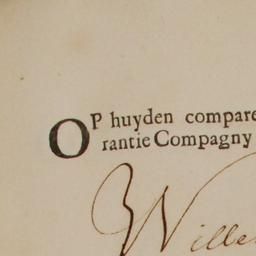 OP huyden compare
rantie Compagny
Wille